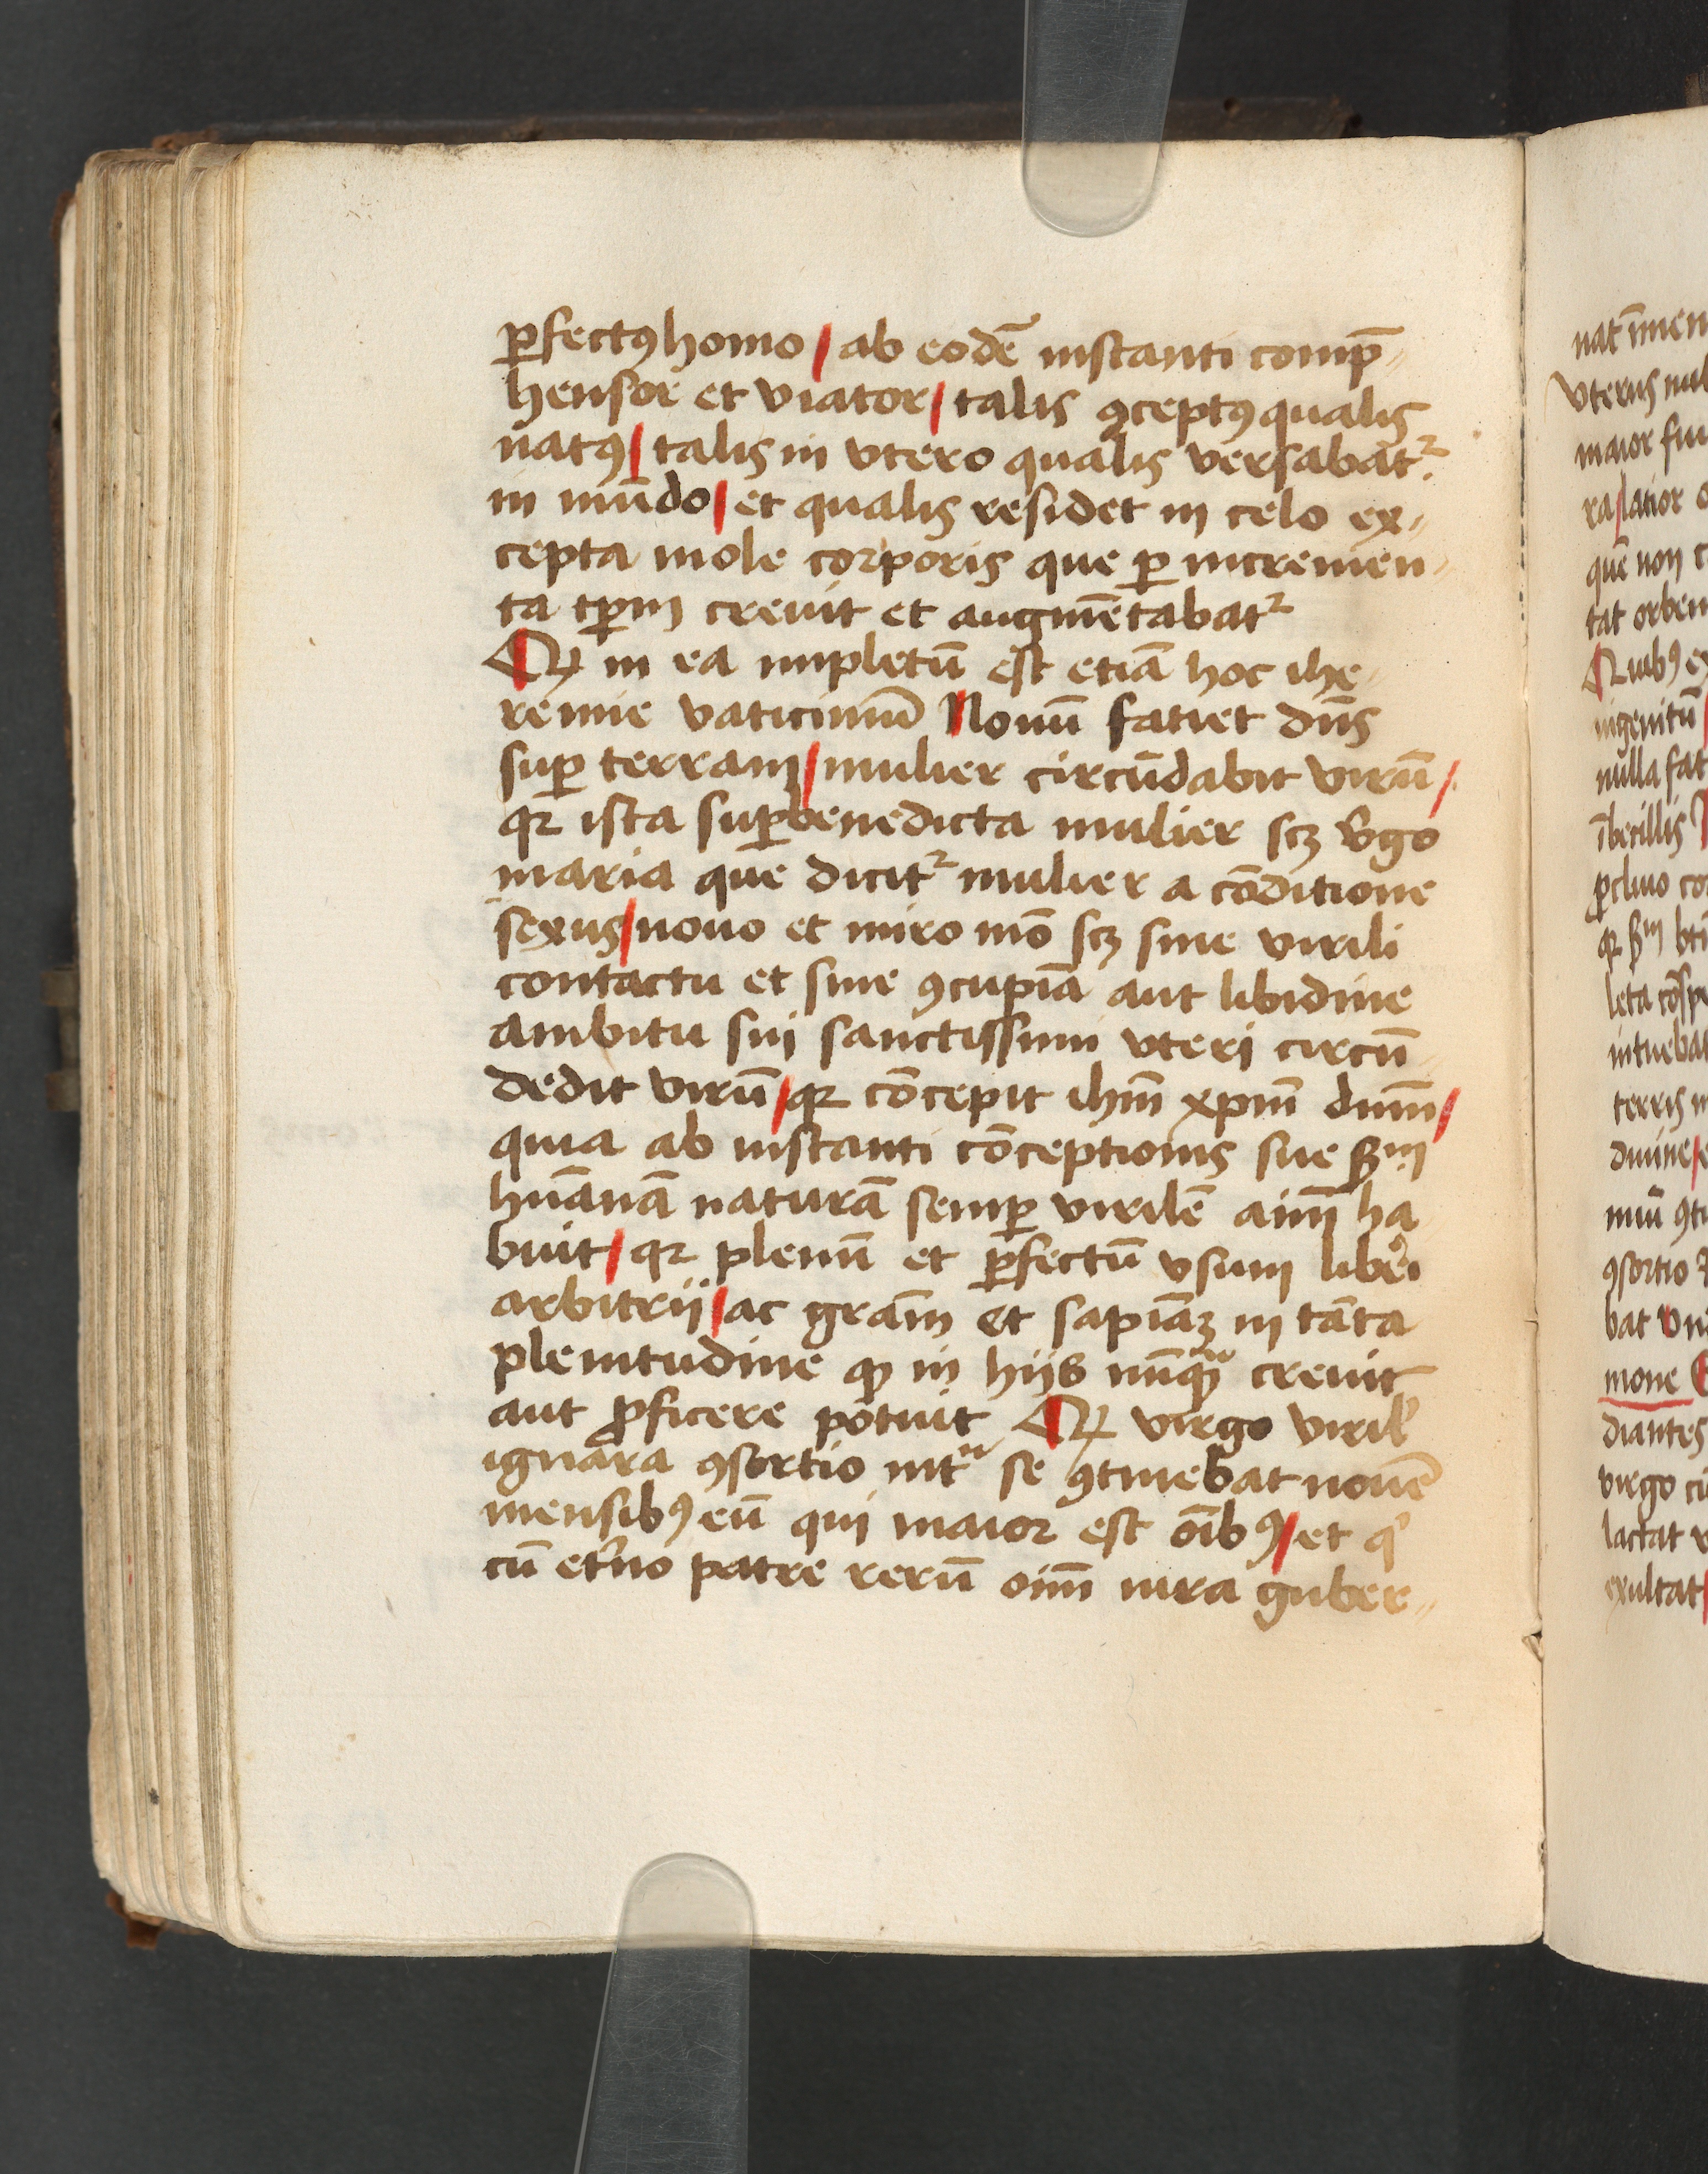 ꝑfectꝰ homo / ab eodē instanti comp̄〃
hensor et viator / talis ꝯceptꝰ qualis
natꝰ / talis in vtero qualis versabatᷣ
in mūdo / et qualis residet in celo ex〃
cepta mole corporis que ꝑ incremen〃
ta tꝑm creuit et augmētabatᷣ
Qꝛ in ea impletū est etiā hoc ihe
remie vaticiniū Nouū fatiet dn̄s
suꝑ terram / mulier circūdabit virū /
qꝛ ista suꝑbenedicta mulier scꝫ v̓go
maria que dicitᷣ mulier a cōditione
sexus / nouo et miro mō scꝫ sine virili
contactu et sine ꝯcupīa aut libidine
ambitu sui sanctissimi vteri circū
dedit virū / qꝛ cōcepit ihm̄ xpm̄ dnm̄ /
quia ab instanti cōceptionis sue ẜm
huānā naturā semꝑ virilē aim̄ ha
buit / qꝛ plenū et ꝑfectū vsum liberi
arbitrii / ac grām et sapiāꝫ in tāta
plenitudine ꝙ in hiis nūqᷓ creuit
aut ꝓficere potuit Qꝛ virgo viril̓
ignara ꝯsortio intᷓ se ꝯtinebat nouē
mensibꝰ eū qui maior est oībꝰ / et q̓
cū et̓no patre rerū oim̄ iura guber〃
nat īmen
vterus nul
maior fui
ra / latior
quē non c
tat orbem
Quibꝰ ex
ingenitū
nulla fat
ībecillis
ꝓcliuo co
qꝛ ẜm bti
leta cōspe
intuebat
terris
diuine /
ꝯsortio
bat vni
mone
diantes
virgo
lactat
exultat